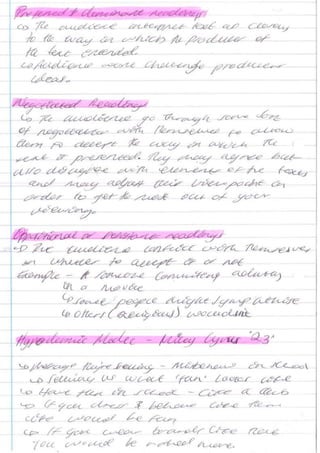 Preferred & dominant readings
↳ The audience interpret text as closely
to the way in which the producer of
the text intended
↳ Audience wont challenge producers
ideas.
Negotiated Readings
↳ The audience go through some sort
of negotiation with themselves to allow
them to accept the way in which the
text is presented. They may agree but
also disagree with elements of the text
and may adjust their viewpoint in
order to get the most out of your
viewing.
Oppositional or resistant readings
↳ The audience conflict with themselves
on whether to accept it or not
Example - A someone committing adultery
in a movie
↳ some people might sympathise
↳ Others (religious) wouldnt
Hypodermic Model - Miley Cyrus '23'
↳ Message - in school
↳ us what 'fun' looks like
↳ Have fun in school - like a club
↳ If you dress & behave like them
life would be fun
↳ If you wear brands like these
you would be noticed more.